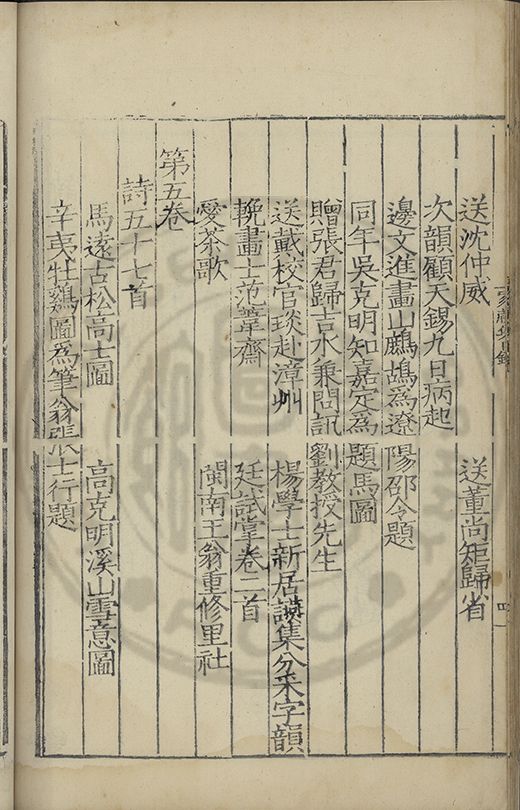 送沈仲威　送董尚矩歸省
次韻顧天錫九日病起
邊文進畫山鷓鴣為遼陽邵令題
同年吳克明知嘉定為題馬圖
贈張君歸吉水兼問訊劉教授先生
送戴校官琰赴漳州　楊學士新居讌集分禾字韻
輓畫士范葦齋　廷試掌卷二首
愛茶歌　閩南王翁重修里社
第五卷
詩五十七首
馬遠古松高士圖　高克明溪山雪意圖
辛夷牡鷄圖為筆翁張士行題